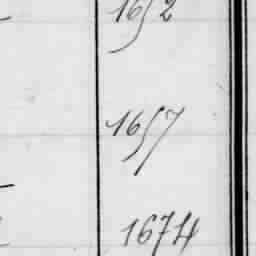 1652
1657
1674